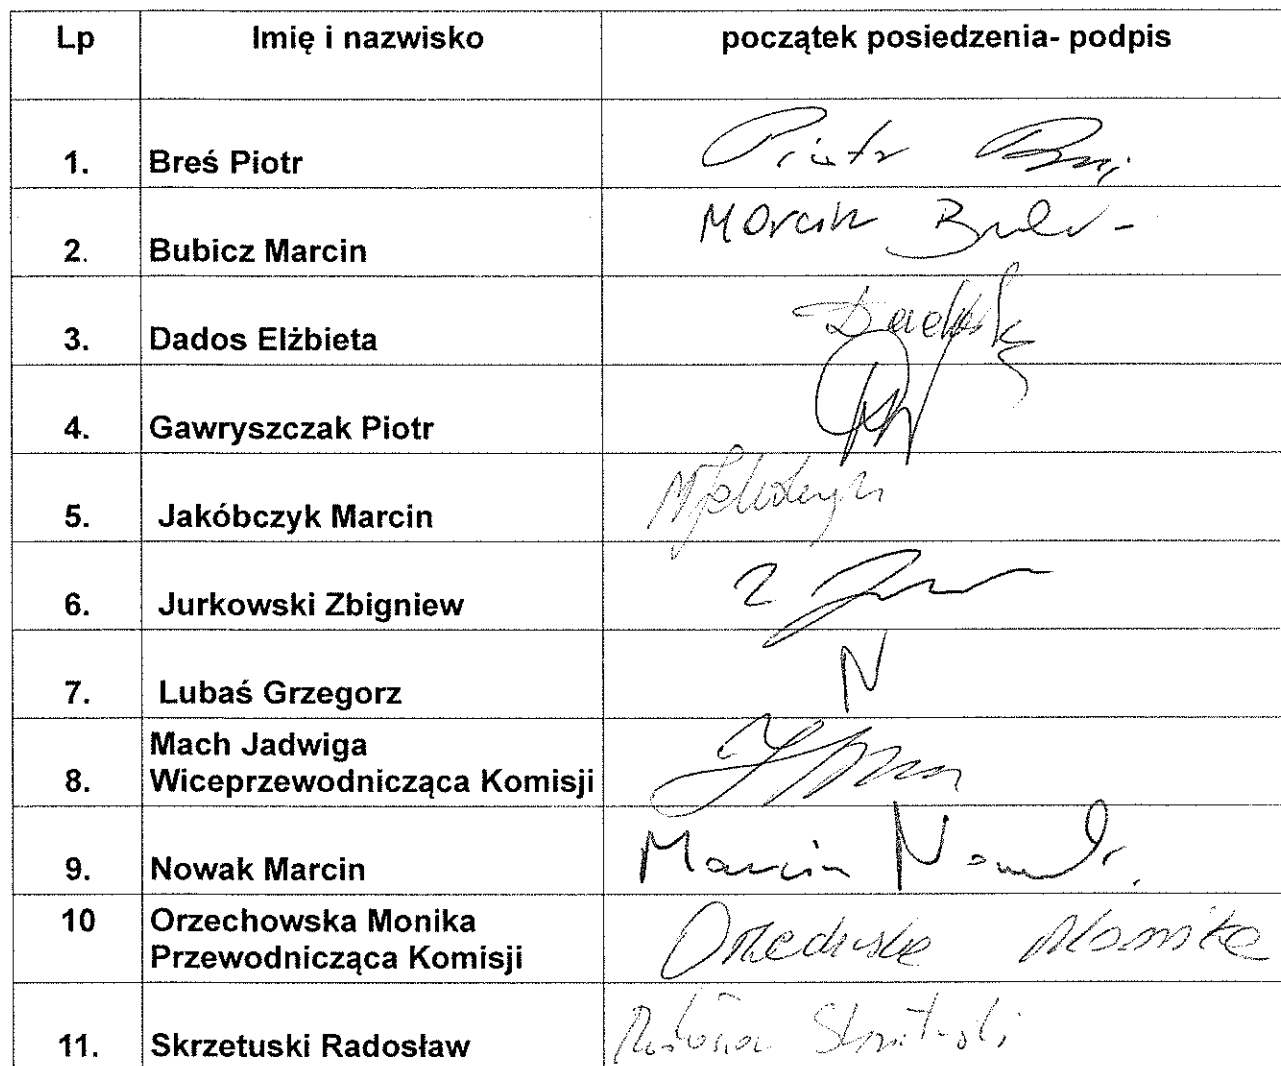 Lp Imię i nazwisko początek posiedzenia- podpis
1. Breś Piotr Piotr
2. Bubicz Marcin Marcin
3. Dados Elżbieta
4. Gawryszczak Piotr
5. Jakóbczyk Marcin
6. Jurkowski Zbigniew
7. Lubaś Grzegorz N
Mach Jadwiga
8. Wiceprzewodnicząca Komisji
9. Nowak Marcin Marcin Nowak
10 Orzechowska Monika
Przewodnicząca Komisji Orzechowska Monika
11. Skrzetuski Radosław Radosław Skrzetuski